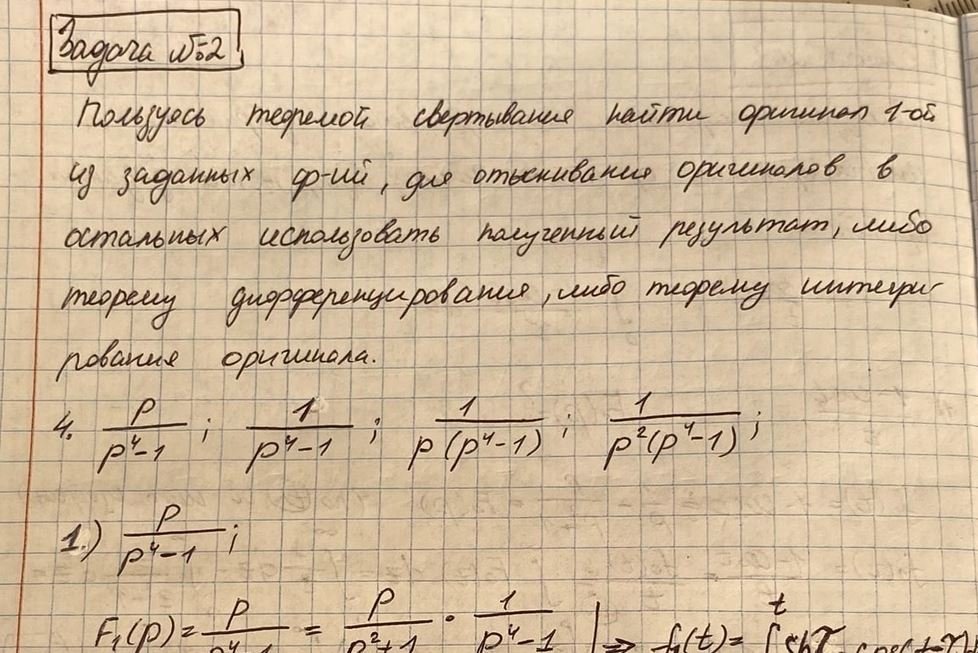 Задача №2
Пользуясь теоремой свертывания найти оригинал 1-ой
из заданных ф-ий, для отыскивания оригиналов в
остальных использовать полученный результат, либо
теорему дифференцирования, либо теорему интегри-
рования оригинала.
4. p/(p⁴-1) ; 1/(p⁴-1) ; 1/(p(p⁴-1)) ; 1/(p²(p⁴-1)) ;
1.) p/(p⁴-1) ;
F₁(p) = p/(p⁴-1) = p/(p²+1) · 1/(p⁴-1) | ⇒ f₁(t) = ∫ t shτ cos(t-τ)